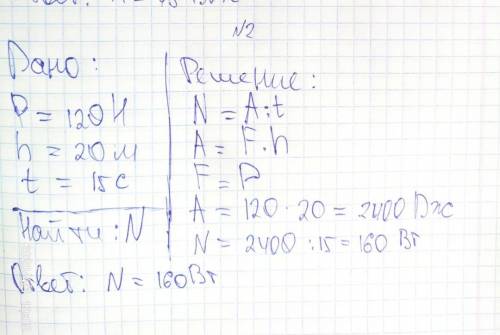 N2
Дано:
P = 120Н
h = 20м
t = 15с
Найти: N
Решение:
N = A:t
A = F·h
F = P
A = 120 · 20 = 2400 Дж
N = 2400 : 15 = 160 Вт
Ответ: N = 160Вт